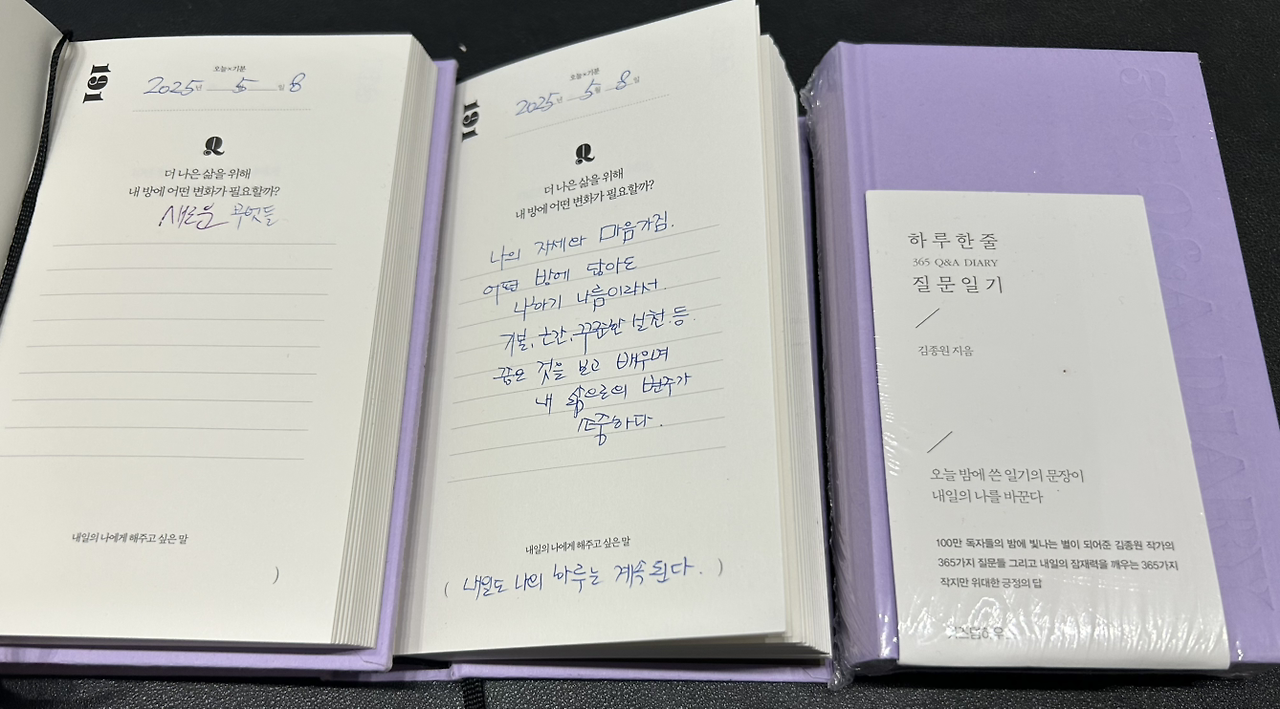 191
오늘×기분
2025년 5 일 8
Q
더 나은 삶을 위해
내 방에 어떤 변화가 필요할까?
새로운 무엇들
내일의 나에게 해주고 싶은 말
)
191
오늘×기분
2025년 5월 8일
Q
더 나은 삶을 위해
내 방에 어떤 변화가 필요할까?
나의 자세와 마음가짐.
어떤 방에 닿아도
나하기 나름이라서.
기본, 근간, 꾸준한 실천 등.
좋은 것을 보고 배우며
내 삶으로의 변주가
소중하다.
내일의 나에게 해주고 싶은 말
( 내일도 나의 하루는 계속된다. )
365 Q&A DIARY
하루 한 줄
365 Q&A DIARY
질문 일기
김종원 지음
오늘 밤에 쓴 일기의 문장이
내일의 나를 바꾼다
100만 독자들의 밤에 빛나는 별이 되어준 김종원 작가의
365가지 질문들 그리고 내일의 잠재력을 깨우는 365가지
작지만 위대한 긍정의 답